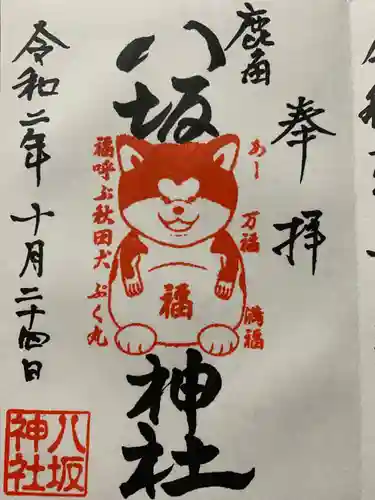 奉拝
鹿角
八坂神社
あー
万福
満福
福
福呼ぶ秋田犬ぷく丸
令和二年十月二十四日
八坂
神社